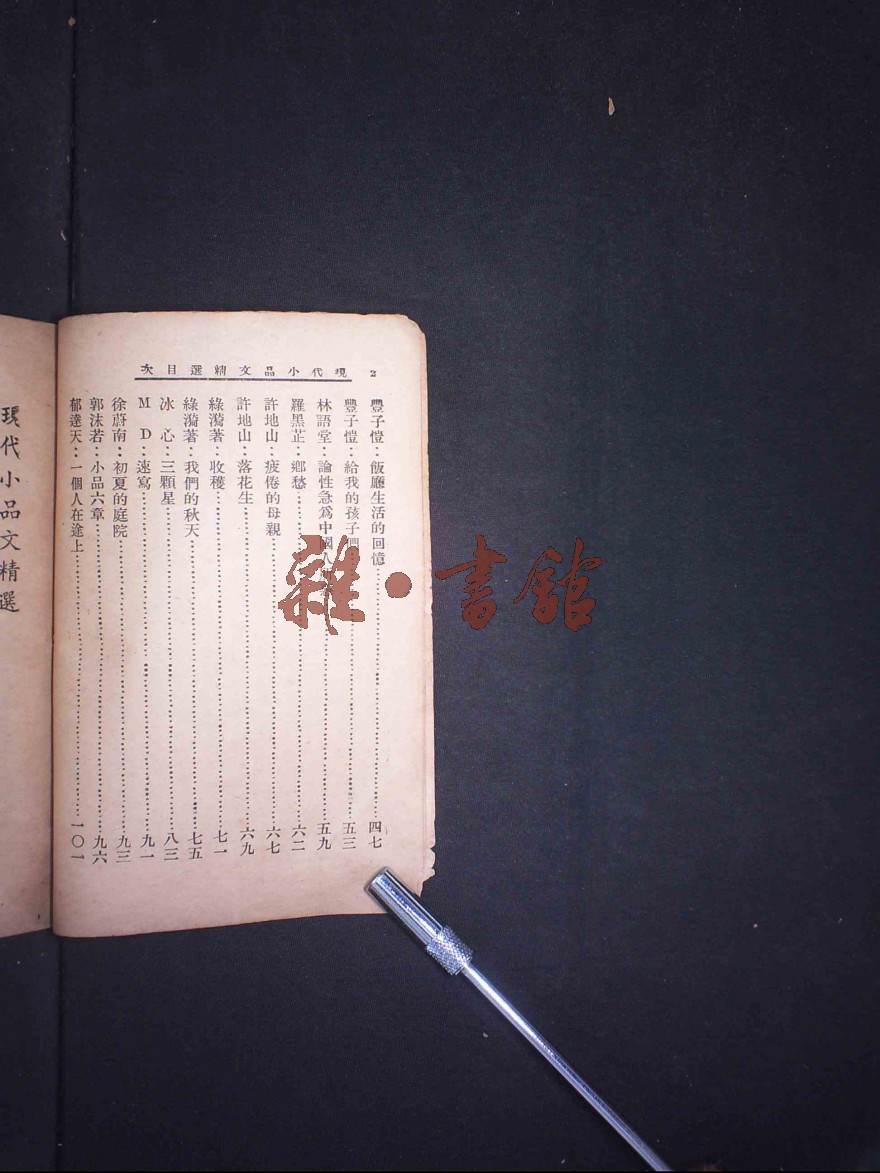 現代小品文精選目次 2
豐子愷：飯廳生活的回憶……四七
豐子愷：給我的孩子們……五三
林語堂：論性急爲中國人……五九
羅黑芷：鄉愁……六二
許地山：疲倦的母親……六七
許地山：落花生……六九
綠漪著：收穫……七一
綠漪著：我們的秋天……七五
冰　心：三顆星……八三
M　D：速寫……九一
徐蔚南：初夏的庭院……九三
郭沫若：小品六章……九六
郁達夭：一個人在途上……一〇一
現代小品文精選
雜·書館